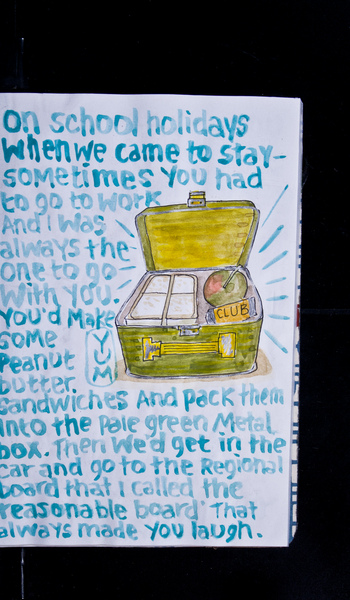 on school holidays
when we came to stay-
sometimes you had
to go to work
And I was
always the
one to go
with you.
You'd Make
some
Peanut
butter
sandwiches And pack them
into the pale green Metal
box. Then We'd get in the
car and go to the Regional
board that I called the
reasonable board. That
always made you laugh.
YUM
CLUB